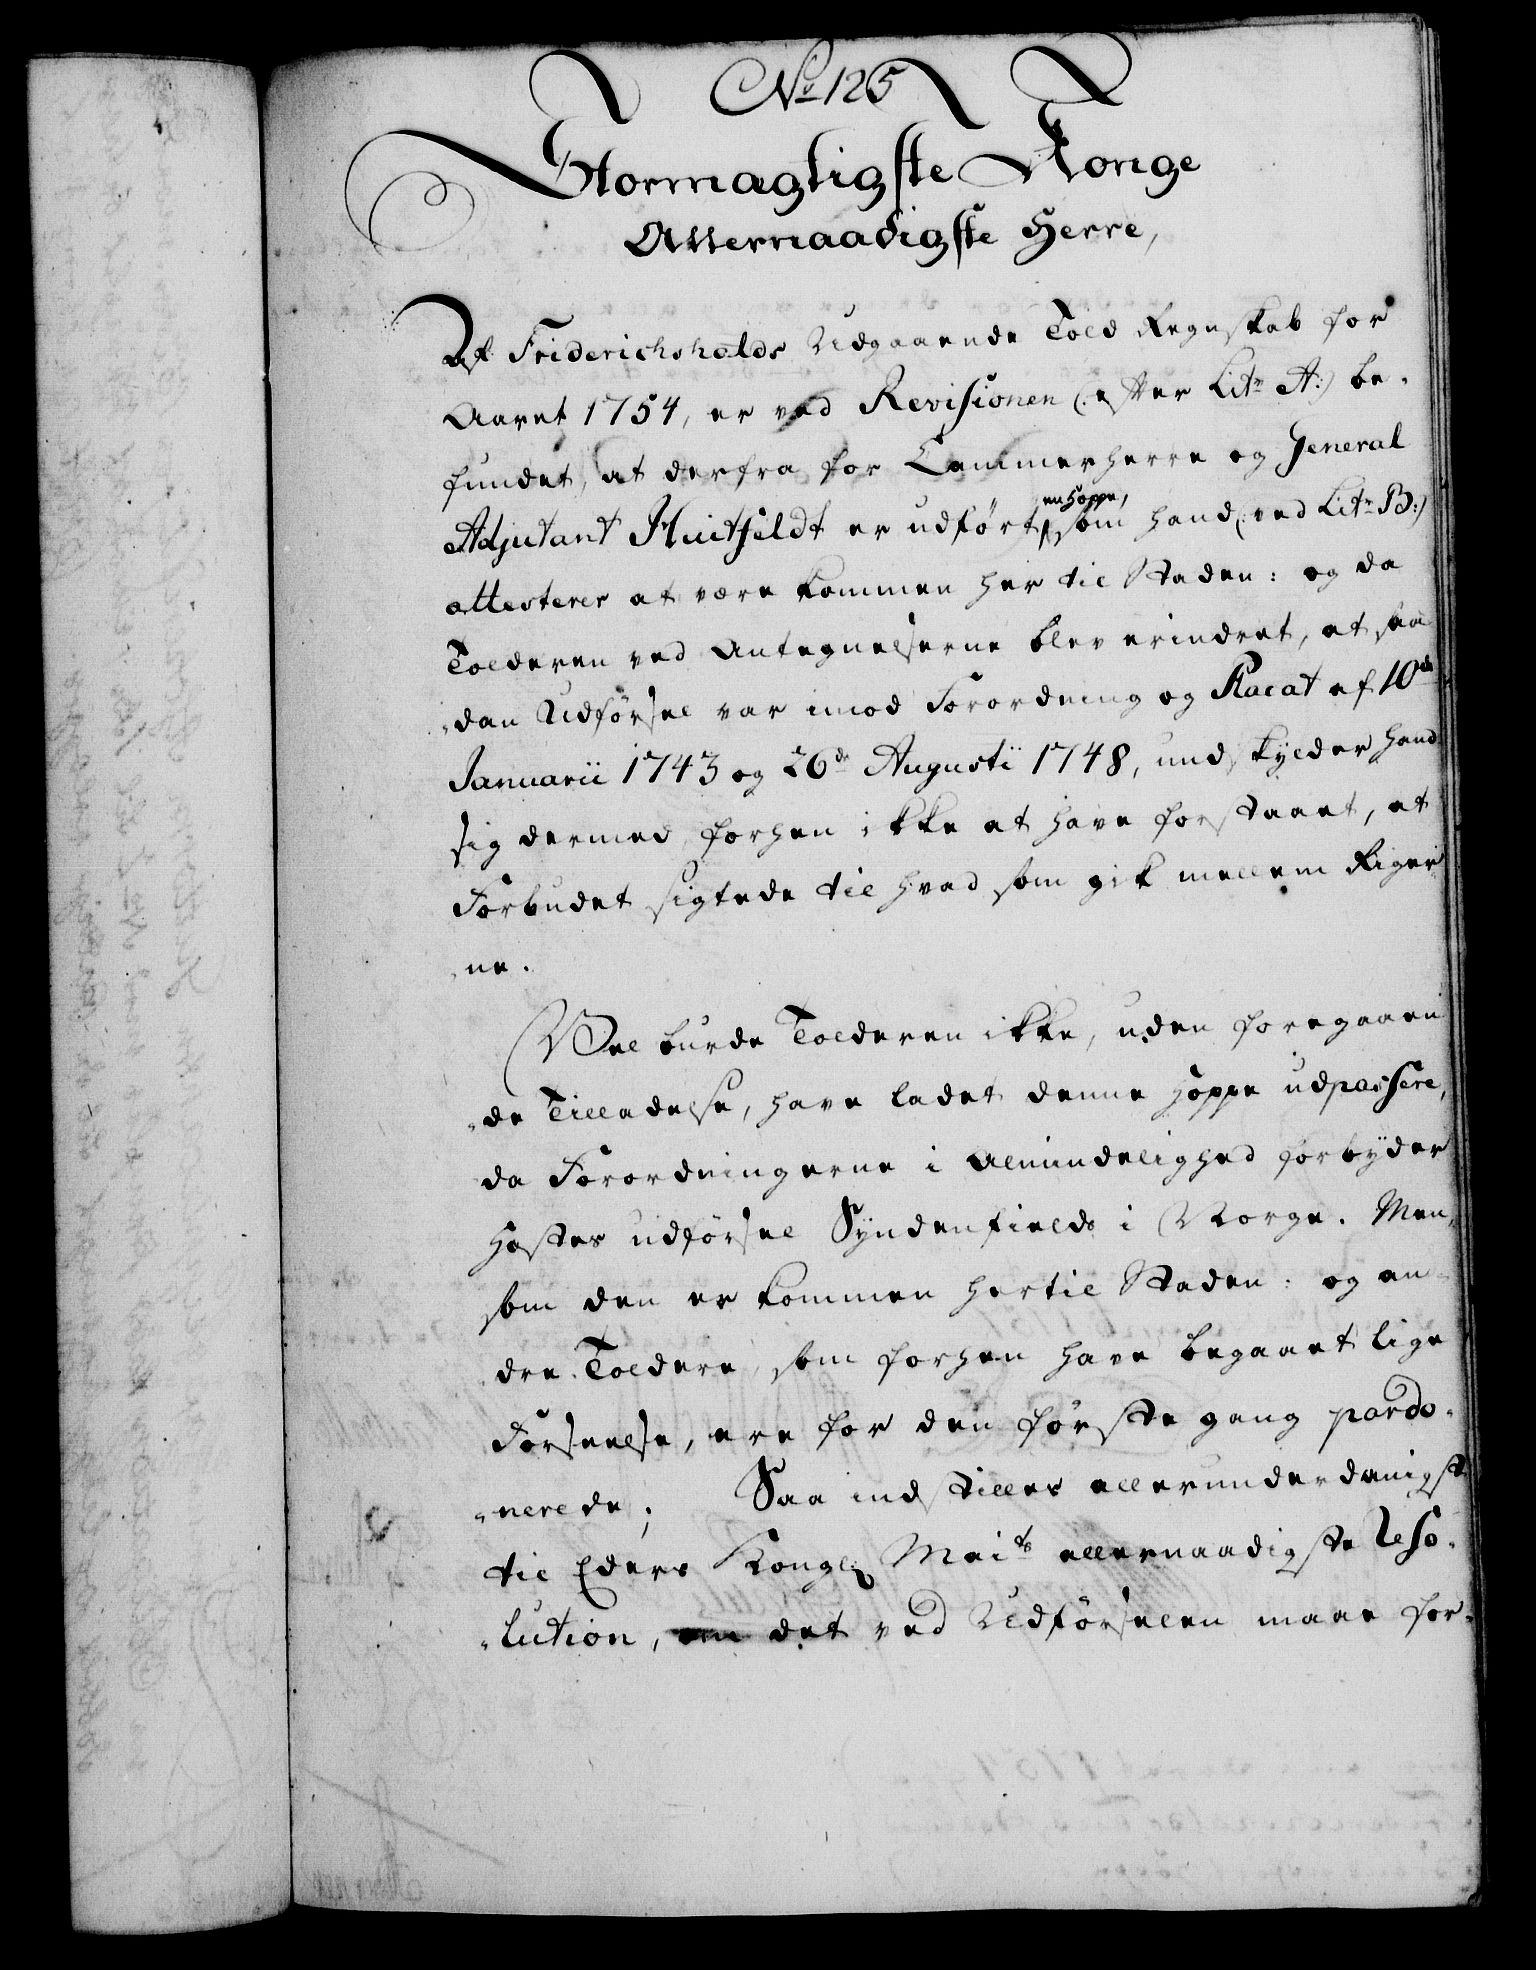 No 125
Stormagtigste Konge
Allernaadigste Herre,
Af Friderichshalds Udgaaende Told Regnskab for
Aaret 1754, er ved Revisionen (: efter Litr A:) be-
fundet, at derfra for Cammerherre og General
Adjutant Huitfeldt er udført en Hoppe, som hand (: ved Litr B:)
attesterer at være kommen her til Staden: og da
Tolderen ved Antegnelserne blev erindret, at saa-
dan Udførsel var imod Forordning og Placat af 10de
Januarii 1743 og 26de Augusti 1748, undskylder hand
sig dermed, forhen ikke at have forstaaet, at
Forbudet sigtede til hvad som gik mellem Riger-
ne.
Vel burde Tolderen ikke, uden foregaaen-
de Tilladelse, have ladet denne Hoppe udpassere,
da Forordningerne i Almindelighed forbyder
Hæstes udførsel Syndenfields i Norge. Men,
som den er kommen hertil Staden: og an-
dre Toldere, som forhen have begaaet lige
Forseelse, ere for den første gang pardo-
nerede; Saa indstilles allerunderdanigst
til Eders Kongl: Maits allernaadigste Reso-
lution, om det ved Udførselen maae for-